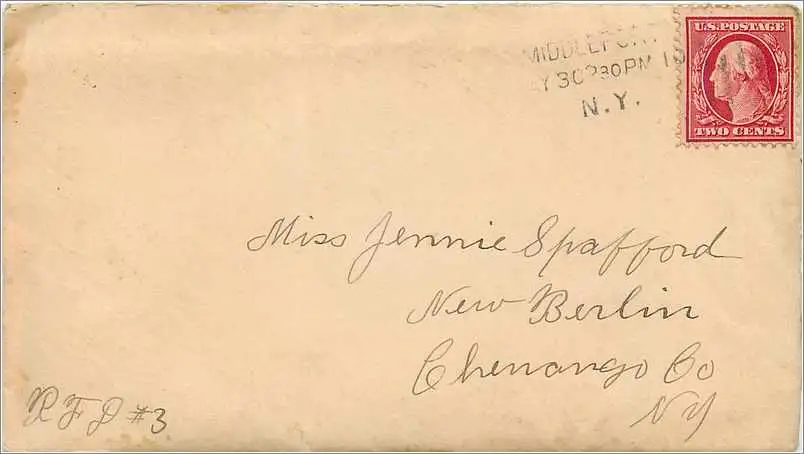 MIDDLEPORT
Y 30 230PM 10
N.Y.
U.S. POSTAGE
TWO CENTS
Miss Jennie Spafford
New Berlin
Chenango Co
NY
RFD #3